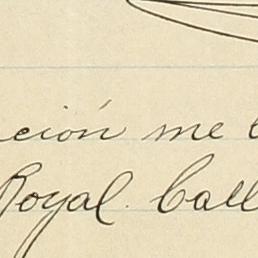 ción me
Royal. Call